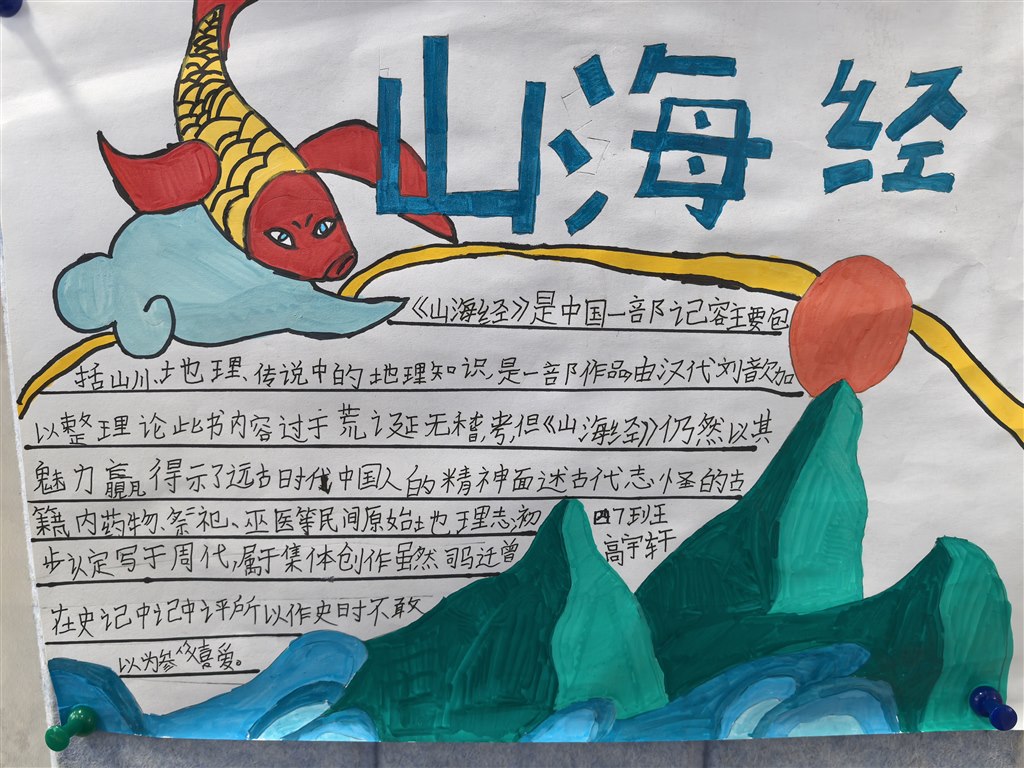 山海经
《山海经》是中国一部记容主要包
括山川、地理、传说中的地理知识,是一部作品由汉代刘歆加
以整理论此书内容过于荒诞无稽,考,但《山海经》仍然以其
魅力赢得示了远古时代中国人的精神面述古代志怪的古
籍,内药物、祭祀、巫医等民间原始地理志,初
步认定写于周代,属于集体创作虽然司马迁曾
在史记中记中评所以作史时不敢
以为参众喜爱。
四7班王
高宇轩